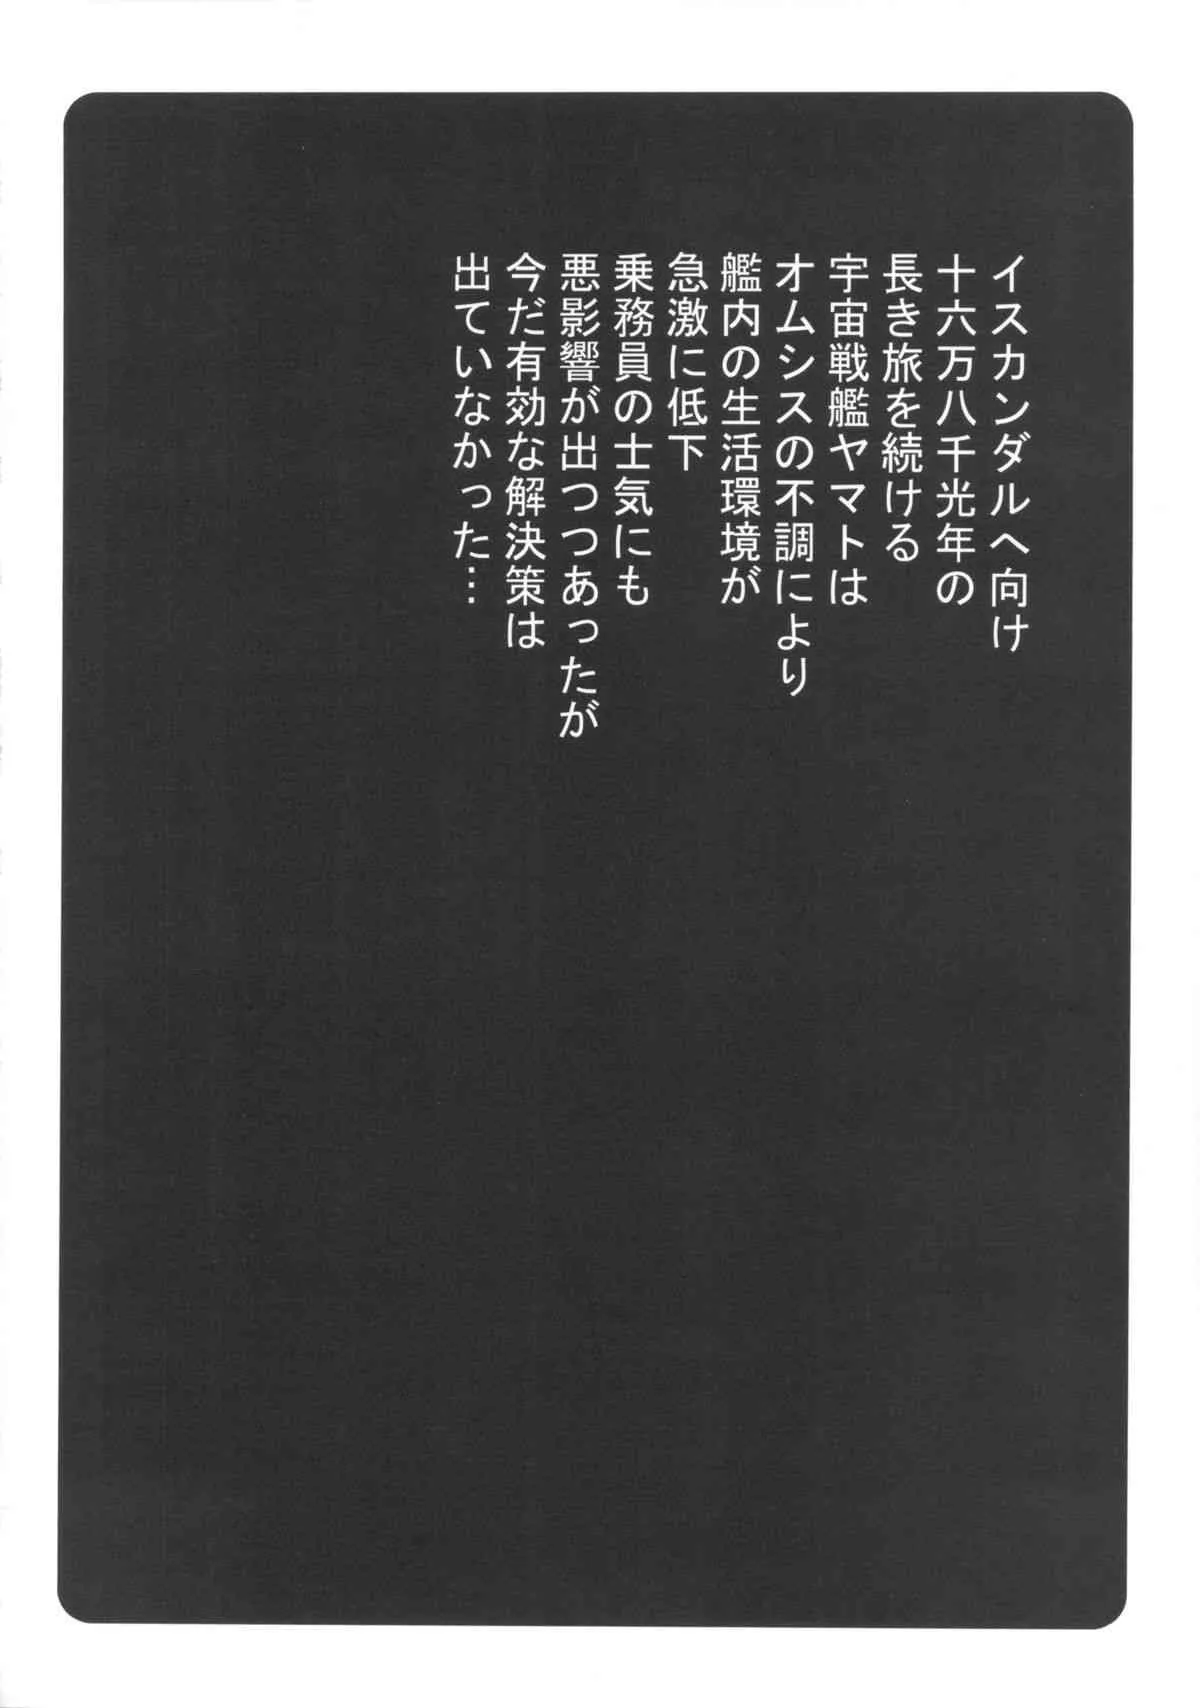 イスカンダルへ向け
十六万八千光年の
長き旅を続ける
宇宙戦艦ヤマトは
オムシスの不調により
艦内の生活環境が
急激に低下
乗務員の士気にも
悪影響が出つつあったが
今だ有効な解決策は
出ていなかった…